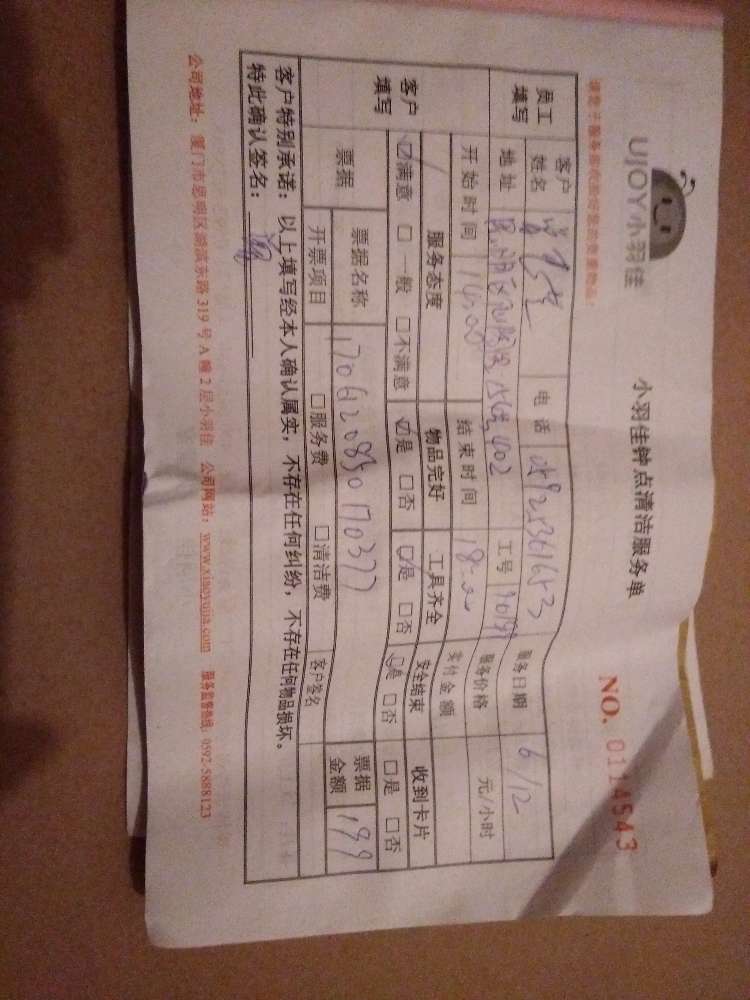 UJOY小羽佳
小羽佳钟点清洁服务单
NO. 0114543
员工填写 客户姓名 电话 服务日期 6/12
地址 402 工号 服务价格 元/小时
开始时间 14:00 结束时间 18:00 实付金额
客户填写 服务态度 物品完好 工具齐全 安全结束 收到卡片
☑满意 □一般 □不满意 ☑是 □否 ☑是 □否 ☑是 □否 □是 □否
票据 票据名称 1706120830170377 票据金额 199
开票项目 □服务费 □清洁费 客户签名
客户特别承诺：以上填写经本人确认属实，不存在任何纠纷，不存在任何物品损坏。
特此确认签名：
公司地址：厦门市思明区湖滨东路 319 号 A 幢 2 层小羽佳 公司网站：www.xiaoyujia.com 服务监督热线：0592-5888123